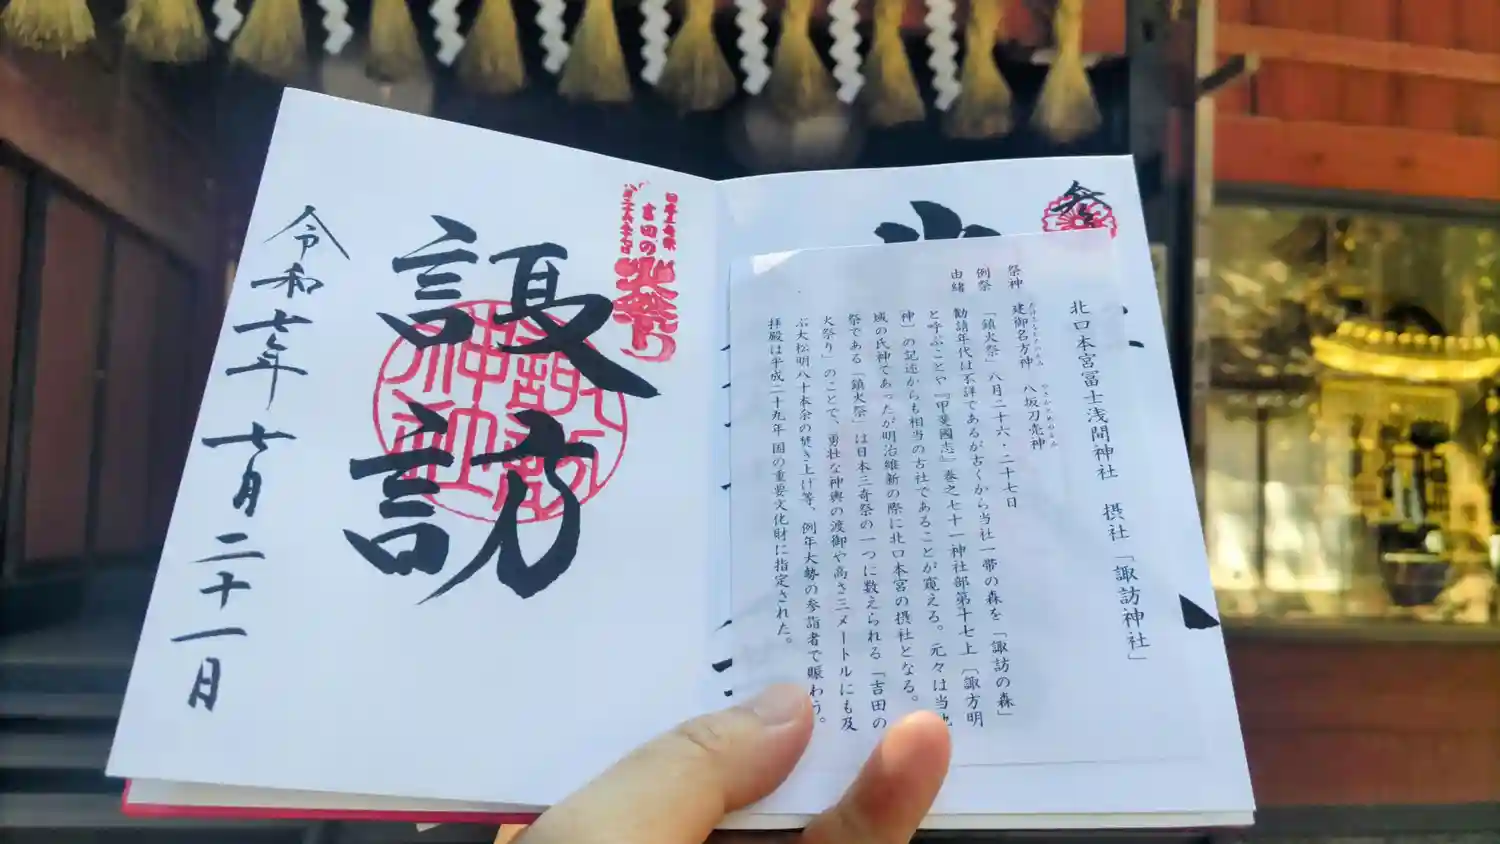 北口本宮冨士浅間神社 摂社「諏訪神社」
祭神 建御名方神 八坂刀売神
例祭 「鎮火祭」八月二十六・二十七日
由緒 勧請年代は不詳であるが古くから当社一帯の森を「諏訪の森」
と呼ぶことや『甲斐國志』巻之七十一神社部第十七上〔諏方明
神〕の記述からも相当の古社であることが窺える。元々は当地
域の氏神であったが明治維新の際に北口本宮の摂社となる。
祭である「鎮火祭」は日本三奇祭の一つに数えられる「吉田の
火祭り」のことで、勇壮な神輿の渡御や高さ三メートルにも及
ぶ大松明八十本余の焚き上げ等、例年大勢の参詣者で賑わう。
拝殿は平成二十九年国の重要文化財に指定された。
日本三奇祭
吉田の
火祭り
諏訪
諏訪神社
令和七年七月二十一日